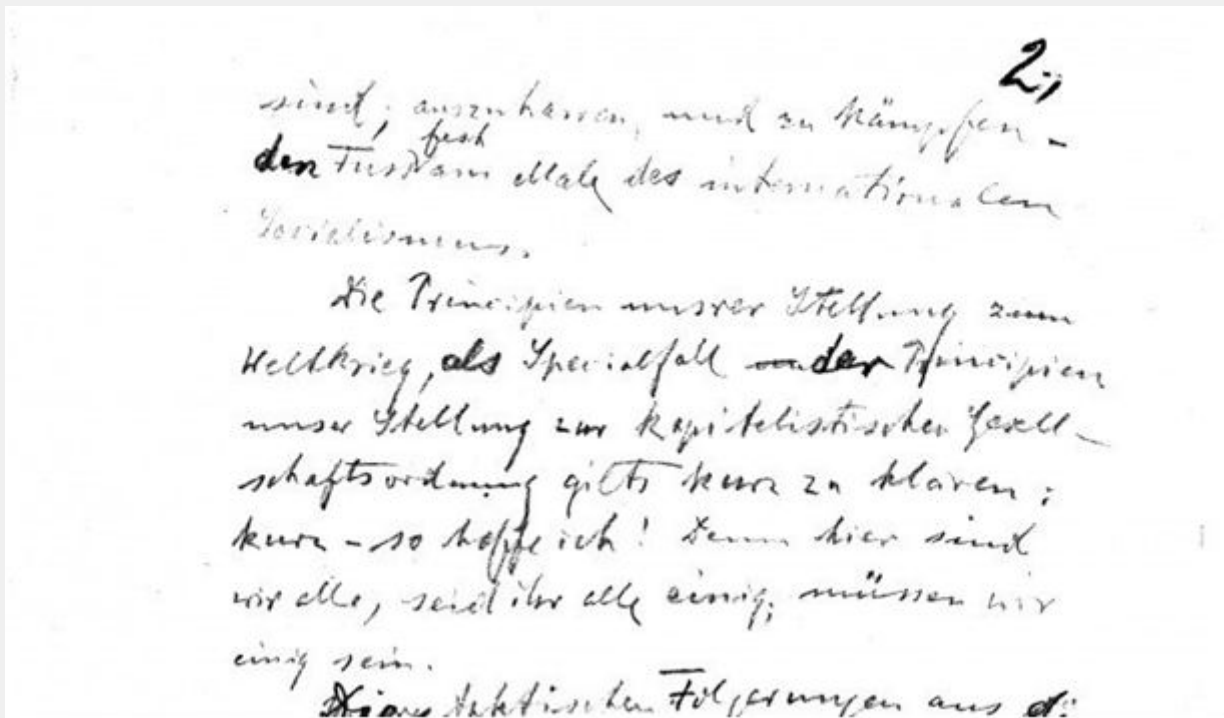 2.,
sind; auszuharren, und zu kämpfen –
fest
den Fuss am Male des internationalen
Socialismus.
Die Principien unsrer Stellung zum
Weltkrieg, als Specialfall der Principien
unser Stellung zur kapitelistischen Gesell-
schaftsordnung gilts kurz zu klären;
kurz – so hoffe ich! Denn hier sind
wir alle, seid ihr alle einig, müssen wir
einig sein.
taktischen Folgerungen aus